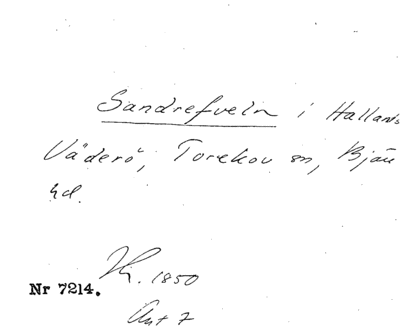 Sandrefveln i Hallands
Väderö, Torekov sn, Bjäre
hd.
1850
Nr 7214.
Ant 7